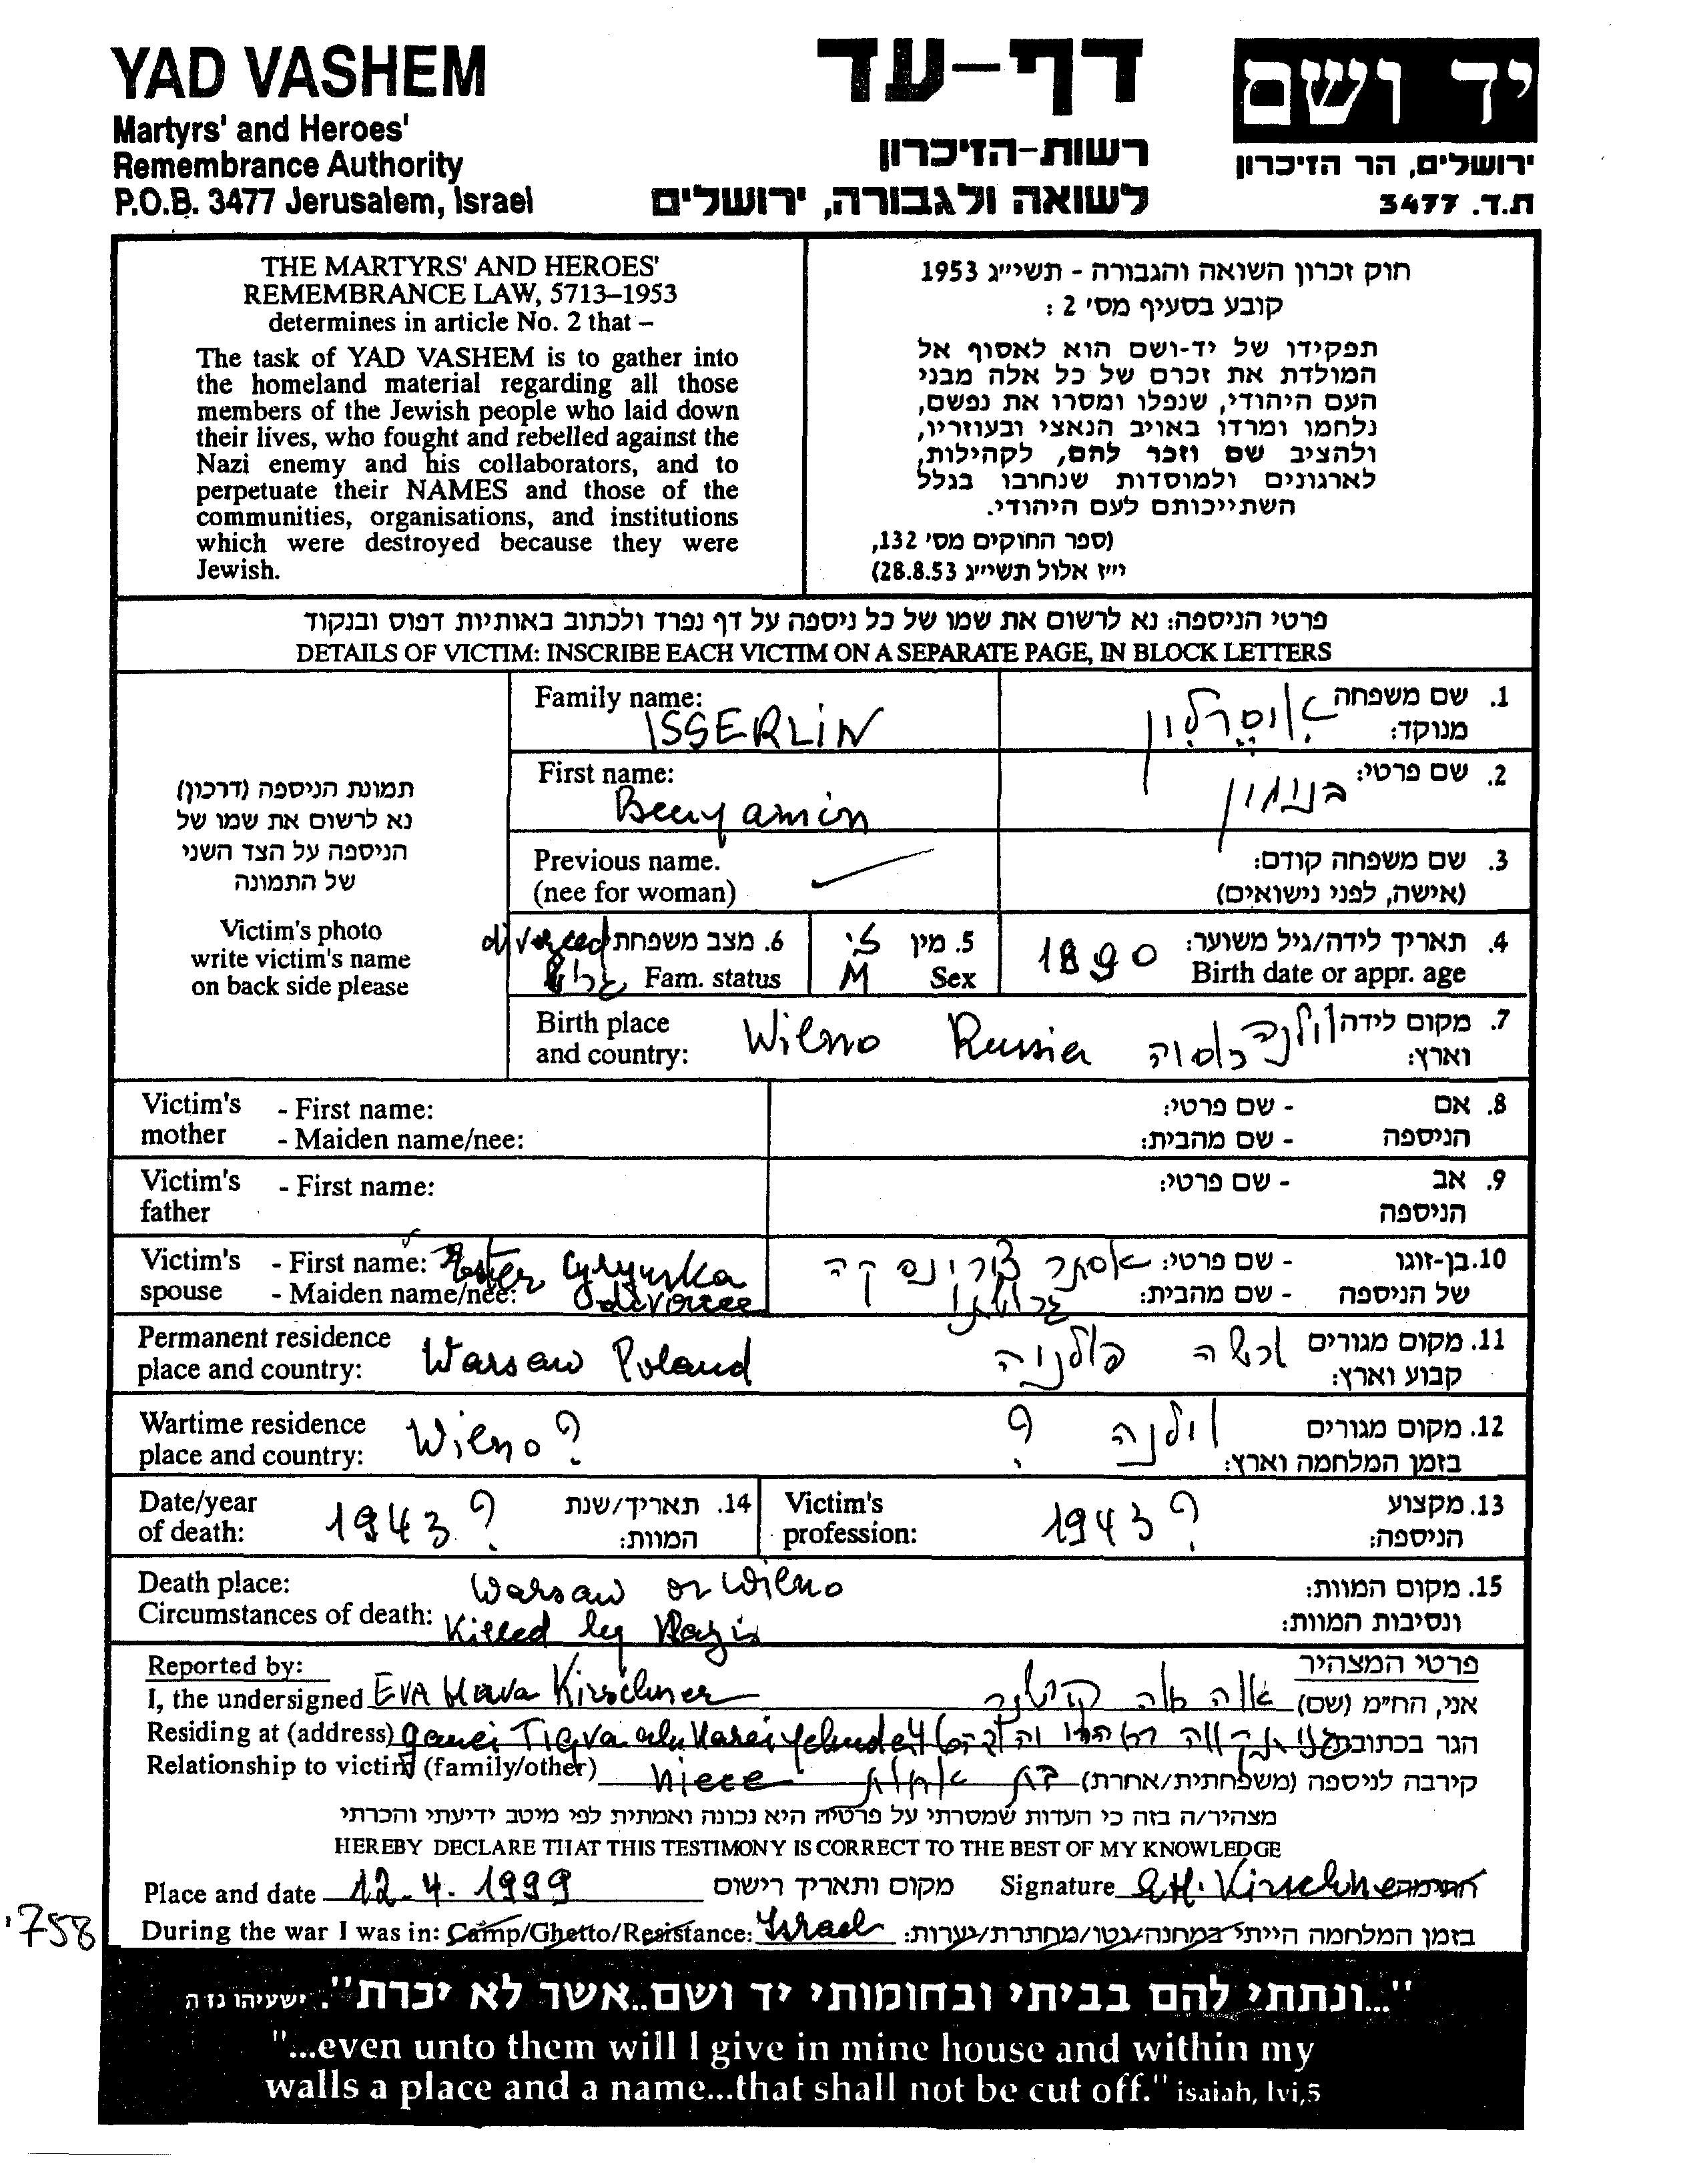 YAD VASHEM
Martyrs' and Heroes'
Remembrance Authority
P.O.B. 3477 Jerusalem, Israel
דף-עד
רשות-הזיכרון
לשואה ולגבורה, ירושלים
יד ושם
ירושלים, הר הזיכרון
ת.ד. 3477
THE MARTYRS' AND HEROES'
REMEMBRANCE LAW, 5713–1953
determines in article No. 2 that –
The task of YAD VASHEM is to gather into
the homeland material regarding all those
members of the Jewish people who laid down
their lives, who fought and rebelled against the
Nazi enemy and his collaborators, and to
perpetuate their NAMES and those of the
communities, organisations, and institutions
which were destroyed because they were
Jewish.
חוק זכרון השואה והגבורה - תשי״ג 1953
קובע בסעיף מס' 2 :
תפקידו של יד-ושם הוא לאסוף אל
המולדת את זכרם של כל אלה מבני
העם היהודי, שנפלו ומסרו את נפשם,
נלחמו ומרדו באויב הנאצי ובעוזריו,
ולהציב שם וזכר להם, לקהילות,
לארגונים ולמוסדות שנחרבו בגלל
השתייכותם לעם היהודי.
(ספר החוקים מס' 132,
י״ז אלול תשי״ג 28.8.53)
פרטי הניספה: נא לרשום את שמו של כל ניספה על דף נפרד ולכתוב באותיות דפוס ובנקוד
DETAILS OF VICTIM: INSCRIBE EACH VICTIM ON A SEPARATE PAGE, IN BLOCK LETTERS
תמונת הניספה (דרכון)
נא לרשום את שמו של
הניספה על הצד השני
של התמונה
Victim's photo
write victim's name
on back side please
Family name: ISSERLIN
1. שם משפחה איסרלין
מנוקד:
First name: Benyamin
2. שם פרטי: בנימין
Previous name.
(nee for woman)
3. שם משפחה קודם:
(אישה, לפני נישואים)
4. תאריך לידה/גיל משוער: 1890
Birth date or appr. age
5. מין ז.
Sex M
6. מצב משפחת divorced
Fam. status גרוש
Birth place
and country: Wilno Russia
7. מקום לידה וילנה רוסיה
וארץ:
Victim's mother - First name:
- Maiden name/nee:
8. אם הניספה - שם פרטי:
- שם מהבית:
Victim's father - First name:
9. אב הניספה - שם פרטי:
Victim's - First name: Ester Cyrynska
spouse - Maiden name/nee: divorcee
10. בן-זוגו - שם פרטי: אסתר צירינסקה
של הניספה - שם מהבית:
Permanent residence
place and country: Warsaw Poland
11. מקום מגורים ורשה פולניה
קבוע וארץ:
Wartime residence
place and country: Wilno ?
12. מקום מגורים וילנה ?
בזמן המלחמה וארץ:
Date/year
of death: 1943 ?
14. תאריך/שנת
המוות:
Victim's
profession: 1943 ?
13. מקצוע
הניספה:
Death place: Warsaw or Wilno
Circumstances of death: Killed by Nazis
15. מקום המוות:
ונסיבות המוות:
Reported by:
פרטי המצהיר
I, the undersigned EVA Hava Kirschner אוה חוה קירשנר אני, הח״מ (שם)
Residing at (address) Ganei Tiqva הגר בכתובת
Relationship to victim (family/other) niece בת אחות קירבה לניספה (משפחתית/אחרת)
מצהיר/ה בזה כי העדות שמסרתי על פרטיה היא נכונה ואמתית לפי מיטב ידיעתי והכרתי
HEREBY DECLARE THAT THIS TESTIMONY IS CORRECT TO THE BEST OF MY KNOWLEDGE
Place and date 12.4.1999 מקום ותאריך רישום Signature E.H. Kirschner חתימה
During the war I was in: Camp/Ghetto/Resistance: Israel בזמן המלחמה הייתי במחנה/גטו/מחתרת/יערות:
758
"...ונתתי להם בביתי ובחומותי יד ושם..אשר לא יכרת". ישעיהו נז ה
"...even unto them will I give in mine house and within my
walls a place and a name...that shall not be cut off." isaiah, lvi,5